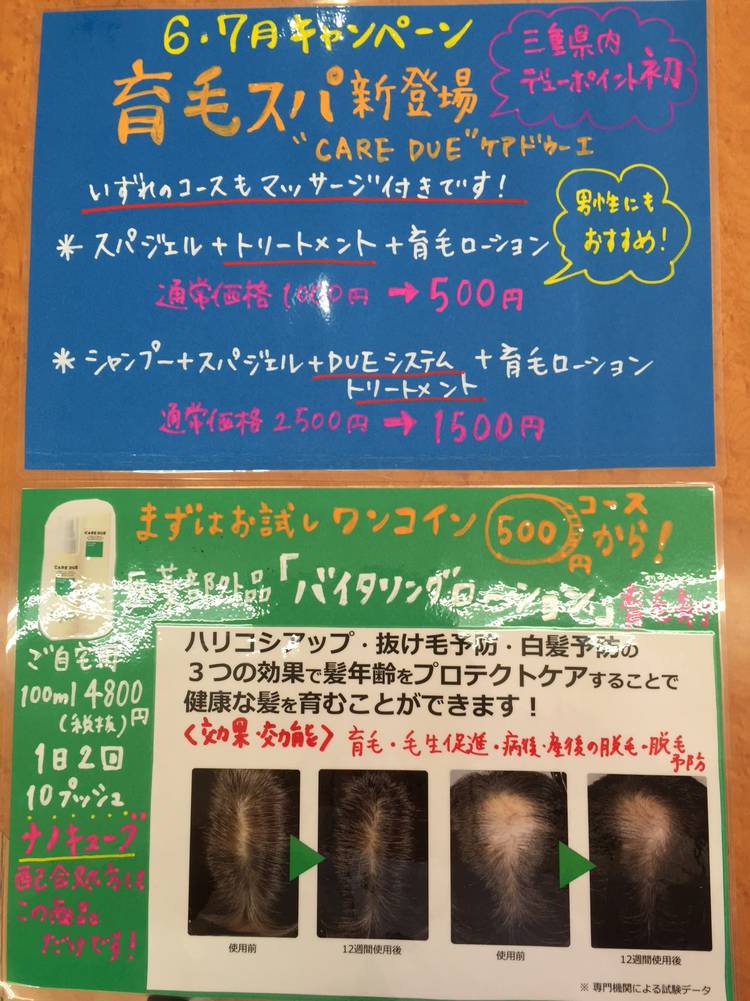 6・7月キャンペーン
三重県内
デューポイント初
育毛スパ新登場
"CARE DUE"ケアドゥーエ
いずれのコースもマッサージ付きです!
男性にも
おすすめ!
* スパジェル+トリートメント+育毛ローション
通常価格1000円→500円
* シャンプー+スパジェル+DUEシステム
トリートメント
+育毛ローション
通常価格2500円→1500円
まずはお試しワンコイン500円コースから!
CARE DUE
CARE DUE
医薬部外品「バイタリングローション」
ハリコシアップ・抜け毛予防・白髪予防の
3つの効果で髪年齢をプロテクトケアすることで
健康な髪を育むことができます!
<効果・効能> 育毛・毛生促進・病後・産後の脱毛・脱毛
予防
ご自宅用
100ml 4800円
(税抜)
1日2回
10プッシュ
ナノキューブ
配合処方は
この商品
だけです!
使用前
12週間使用後
使用前
12週間使用後
※ 専門機関による試験データ